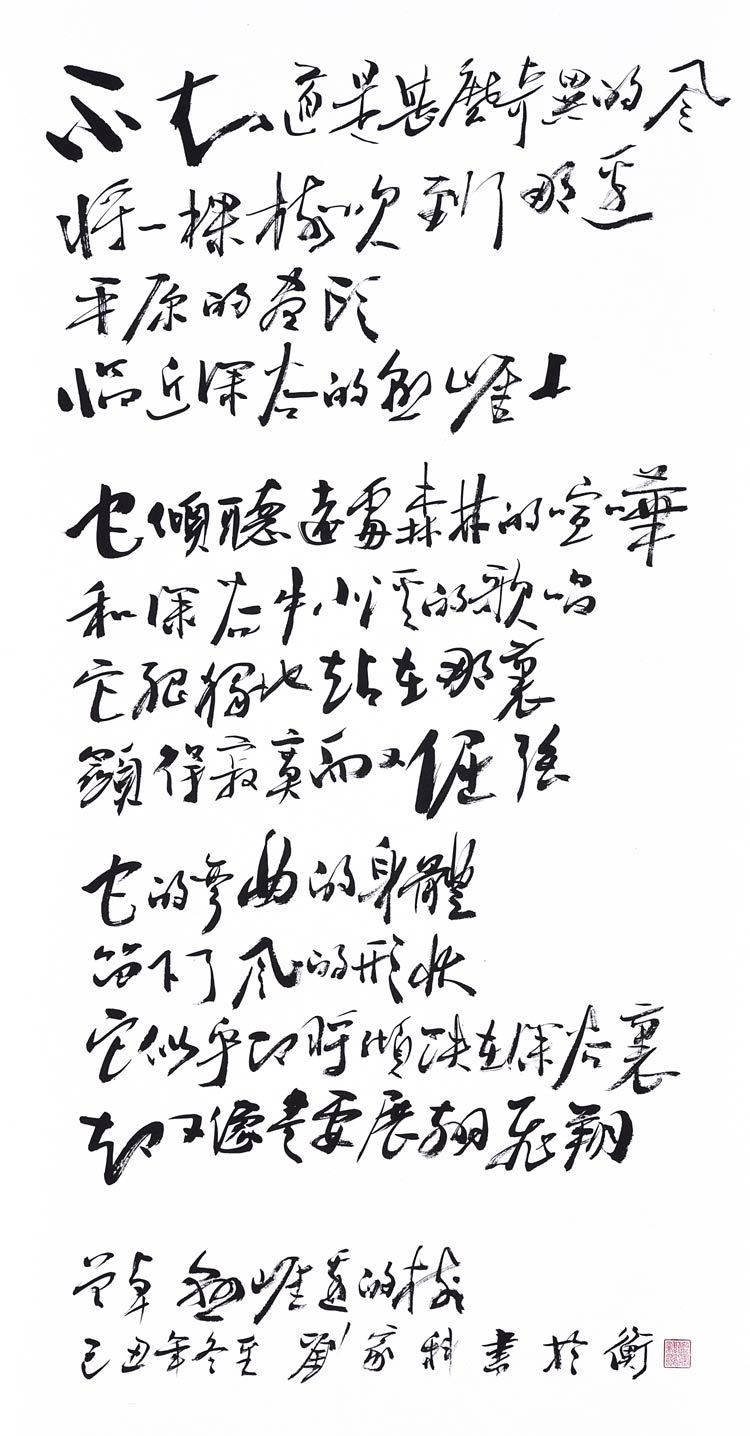 不知道是甚麽奇異的风
將一棵樹吹到那邊
平原的盡頭
臨近深谷的懸崖上
它傾聽遠處森林的喧嘩
和深谷中小溪的歌唱
它孤獨地站在那裏
顯得寂寞而又倔强
它的彎曲的身體
留下了风的形狀
它似乎即將傾跌在深谷裏
却又像是要展翅飛翔
曾卓 懸崖邊的樹
己丑年冬至 劉家科書於衡